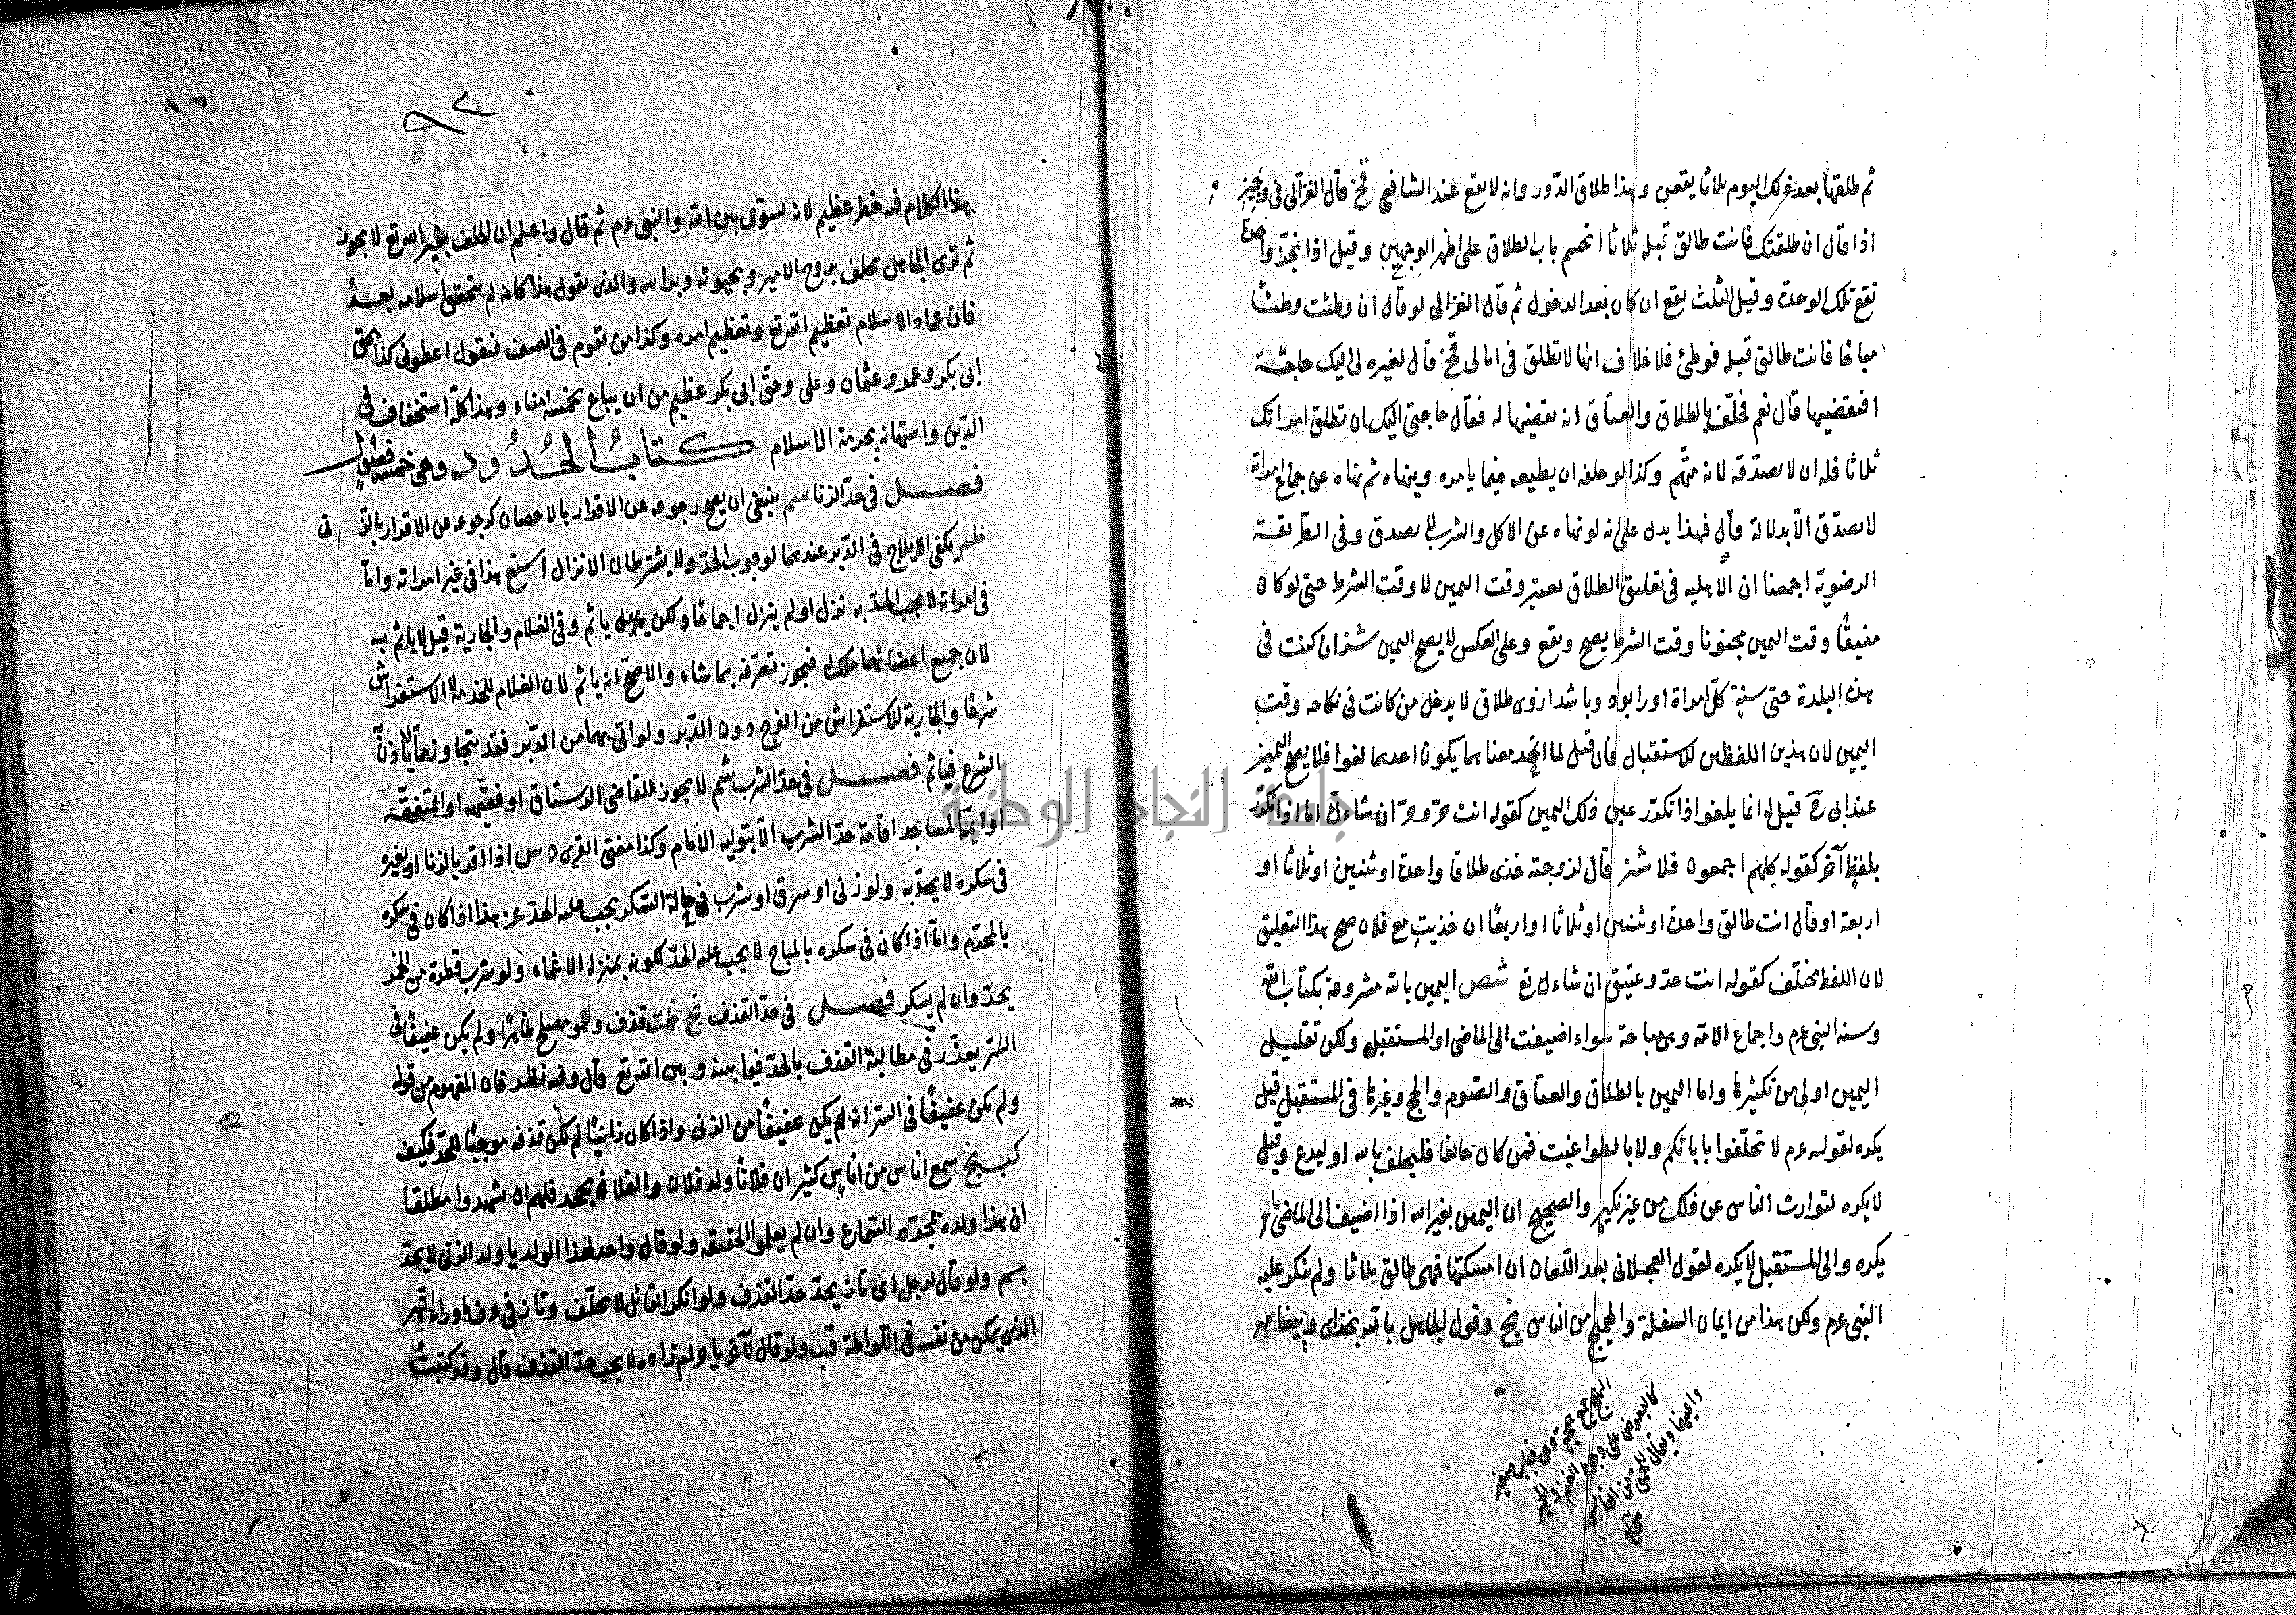 ثم طلقها بعد ذلك اليوم ثلاثا يقعن وهذا طلاق الدور وانه لا يقع عند الشافعي فخ قال الغزالى فى وجيزه
اذا قال ان طلقتك فانت طالق قبله ثلاثا انحسم باب الطلاق على اظهر الوجهين وقيل اذا نجز واحدة
تقع تلك الوحدة وقيل الثلث يقع ان كان بعد الدخول ثم قال الغزالى لو قال ان وطئت وطئا
مباحا فانت طالق قبله فوطئ فلا خلاف انها لا تطلق فى امالى فخ قال لغيره لى اليك حاجة
افتقضيها قال نعم فحلف بالطلاق والعتاق انه يقضيها له فقال حاجتى اليك ان تطلق امراتك
ثلاثا فله ان لا يصدقه لانه متهم وكذا لو حلفه ان يطيعه فيما يامره وينهاه ثم نهاه عن جماع امراته
لا يصدق الا بدلالة قال فهذا يدل على انه لو نهاه عن الاكل والشرب لم يصدق وفى الطريقة
الرضوية اجمعنا ان الاهلية فى تعليق الطلاق يعتبر وقت اليمين لا وقت الشرط حتى لو كان
مفيقا وقت اليمين مجنونا وقت الشرط يصح ويقع وعلى العكس لا يصح اليمين
هذه البلدة حتى سنة كل امراة اورا بود وباشد ازوى طلاق لا يدخل من كانت فى نكاحه وقت
اليمين لان هذين اللفظين للاستقبال فان قيل لما اتحد معناهما يكون احدهما لغوا فلا يصح اليمين
عند ابى ح قيل له انما يلغو اذا تكرر عين ذلك اليمين كقوله انت حر وحر ان شاء الله اما اذا تكرر
بلفظ آخر كقوله كلهم اجمعون فلا شنز قال لزوجته خذى طلاقا واحدة او ثنتين او ثلاثا او
اربعة او قال انت طالق واحدة او ثنتين او ثلاثا او اربعا ان مع فلان صح هذا التعليق
لان اللفظ مختلف كقوله انت حر وعتيق ان شاء الله تع شص اليمين بالله مشروعة بكتاب الله
وسنة النبى عم واجماع الامة وهى مباحة سواء اضيفت الى الماضى او المستقبل ولكن تقليل
اليمين اولى من تكثيرها واما اليمين بالطلاق والعتاق والصوم والحج وغيرها فى المستقبل قيل
يكره لقوله عم لا تحلفوا بابائكم ولا بالطواغيت فمن كان حالفا فليحلف بالله او ليدع وقيل
لا يكره لتوارث الناس عن ذلك من غير نكير والصحيح ان اليمين بغير الله اذا اضيف الى الماضى
يكره والى المستقبل لا يكره لقول العجلانى بعد اللعان ان امسكتها فهى طالق ثلاثا ولم ينكر عليه
النبى عم ولكن هذا من ايمان السفلة والهمج من الناس نخ وقول الجاهل بالله بخداى
الهمج جمع همجة وهى ذباب صغير
كالبعوض على وجوه الغنم والحمير
واعينها ويقال للحمقى من الناس
٩٢
٨٦
هذا الكلام فيه خطر عظيم لانه يسوى بين الله والنبى عم ثم قال واعلم ان الحلف بغير الله تع لا يجوز
ثم ترى الجاهل يحلف بروح الامير وبحيوته وبراسه والذى يقول هذا كانه لم يتحقق اسلامه بعد
فان عماد الاسلام تعظيم الله تع وتعظيم امره وكذا من يقوم فى الصف فيقول اعطونى كذا بحق
ابى بكر وعمر وعثمان وعلى وحق ابى بكر عظيم من ان يباع بخمسة امناء وهذا كله استخفاف فى
الدين واستهانة بحرمة الاسلام كتاب الحدود وهى خمسة فصول
فصل فى حد الزنا سم ينبغى ان يصح رجوعه عن الاقرار بالاحصان كرجوعه عن الاقرار بالزنا
ظم يكفى الايلاج فى الدبر عندهما لوجوب الحد ولا يشترطان الانزال اسنع هذا فى غير امراته واما
فى امراته لا يجب الحد به نزل او لم ينزل اجماعا ولكن يعزر هل ياثم وفى الغلام والجارية قيل لا ياثم به
لان جميع اعضائهما ملك له فيجوز تصرفه بما شاء والاصح انه ياثم لان الغلام للخدمة لا الاستفراش
شرعا والجارية للاستفراش من الفرج دون الدبر ولو اتى بهما من الدبر فقد تجاوز عما اذن
الشرع فياثم فصل فى حد الشرب شم لا يجوز للقاضى الرستاق او فقيه او المتفقهة
او ايمة المساجد اقامة حد الشرب الا بتولية الامام وكذا مفتى القرى س اذا اقر بالزنا او بغيره
فى سكره لا يحد به ولو زنى او سرق او شرب فى حالة السكر يجب عليه الحد عز هذا اذا كان فى سكره
بالمحرم واما اذا كان فى سكره بالمباح لا يجب عليه الحد لكونه بمنزلة الاغماء ولو شرب قطرة من الخمر
يحد وان لم يسكر فصل فى حد القذف نخ ظت قذف وهو مصلح ظاهرا ولم يكن عفيفا فى
السر يعذر فى مطالبة القذف بالحد فيما بينه وبين الله تع قال وفيه نظر فان المفهوم من قوله
ولم يكن عفيفا فى السر انه لم يكن عفيفا من الزنى واذا كان زانيا لم يكن قذفه موجبا للحد فكيف
كب نخ سمع اناس من اناس كثير ان فلانا ولد فلان والفلان يجحد فلهم ان يشهدوا مطلقا
ان هذا ولده بمجرد السماع وان لم يعلموا الحقيقة ولو قال واحد لهذا الولد يا ولد الزنى لا يحد
بسم ولو قال لرجل اى تاز يحد حد القذف ولو انكر القائل لا يحلف وتاز فى عرف ماوراء النهر
الذى يمكن من نفسه فى اللواطة قب ولو قال لآخر يا حرام زاده لا يجب حد القذف قال وقد كتبت